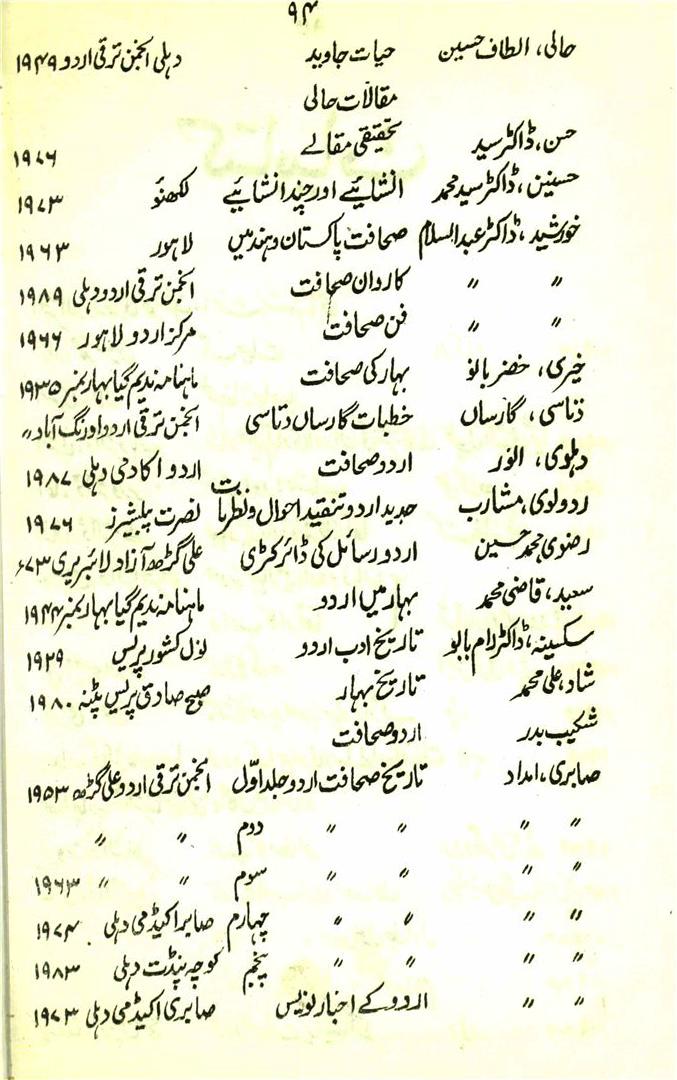 ۹۴
حالی، الطاف حسین حیات جاوید دہلی انجمن ترقی اردو ۱۹۴۹
مقالات حالی
حسن، ڈاکٹر سید تحقیقی مقالے ۱۹۷۶
حسنین، ڈاکٹر سید محمد انشائیے اور چند انشائیے لکھنؤ ۱۹۷۳
خورشید، ڈاکٹر عبدالسلام صحافت پاکستان و ہند میں لاہور ۱۹۶۳
〃 〃 کاروان صحافت انجمن ترقی اردو دہلی ۱۹۸۹
〃 〃 فن صحافت مرکز اردو لاہور ۱۹۶۶
خیری، خضر بانو بہار کی صحافت ماہنامہ ندیم گیا بہار نمبر ۱۹۳۵
دتاسی، گارساں خطبات گارساں دتاسی انجمن ترقی اردو اورنگ آباد 〃
دہلوی، انور اردو صحافت اردو اکادمی دہلی ۱۹۸۷
ردولوی، مشارب جدید اردو تنقید احوال و نظریات نصرت پبلیشرز ۱۹۷۶
رضوی محمد حسین اردو رسائل کی ڈائرکٹری علی گڑھ آزاد لائبریری ۶۷۳
سعید، قاضی محمد بہار میں اردو ماہنامہ ندیم گیا بہار نمبر ۱۹۴۴
سکسینہ، ڈاکٹر رام بابو تاریخ ادب اردو نول کشور پریس ۱۹۲۹
شاد، علی محمد تاریخ بہار صبح صادق پریس پٹنہ ۱۹۸۰
شکیب بدر اردو صحافت
صابری، امداد تاریخ صحافت اردو جلد اوّل انجمن ترقی اردو علی گڑھ ۱۹۵۳
〃 〃 〃 〃 دوم 〃 〃
〃 〃 〃 〃 سوم 〃 〃 ۱۹۶۳
〃 〃 〃 〃 چہارم صابر اکیڈمی دہلی ۱۹۷۴
〃 〃 〃 〃 پنجم کوچہ پنڈت دہلی ۱۹۸۳
〃 〃 اردو کے اخبار نویس صابری اکیڈمی دہلی ۱۹۷۳